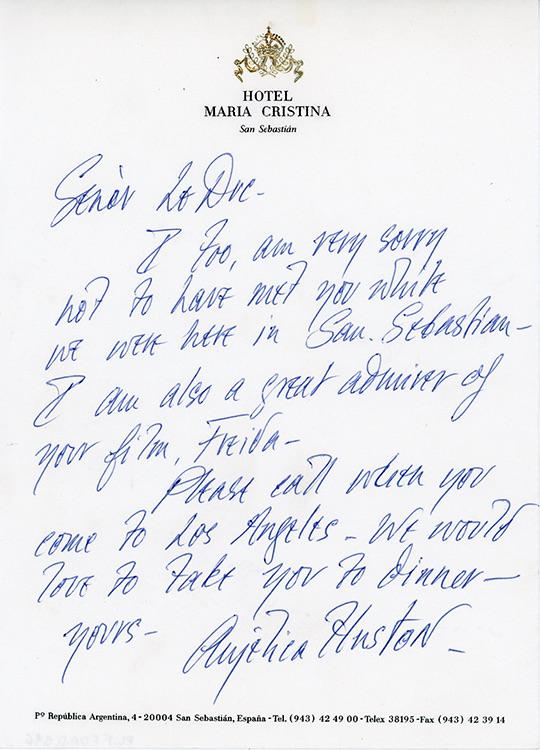 HOTEL
MARIA CRISTINA
San Sebastián
Señor Le Duc-
I too, am very sorry
not to have met you while
we were here in San. Sebastian-
I am also a great admirer of
your film, Freida-
Please call when you
come to Los Angeles - We would
love to take you to dinner-
yours-
Anjelica Huston-
Pº República Argentina, 4 - 20004 San Sebastián, España - Tel. (943) 42 49 00 - Telex 38195 - Fax (943) 42 39 14